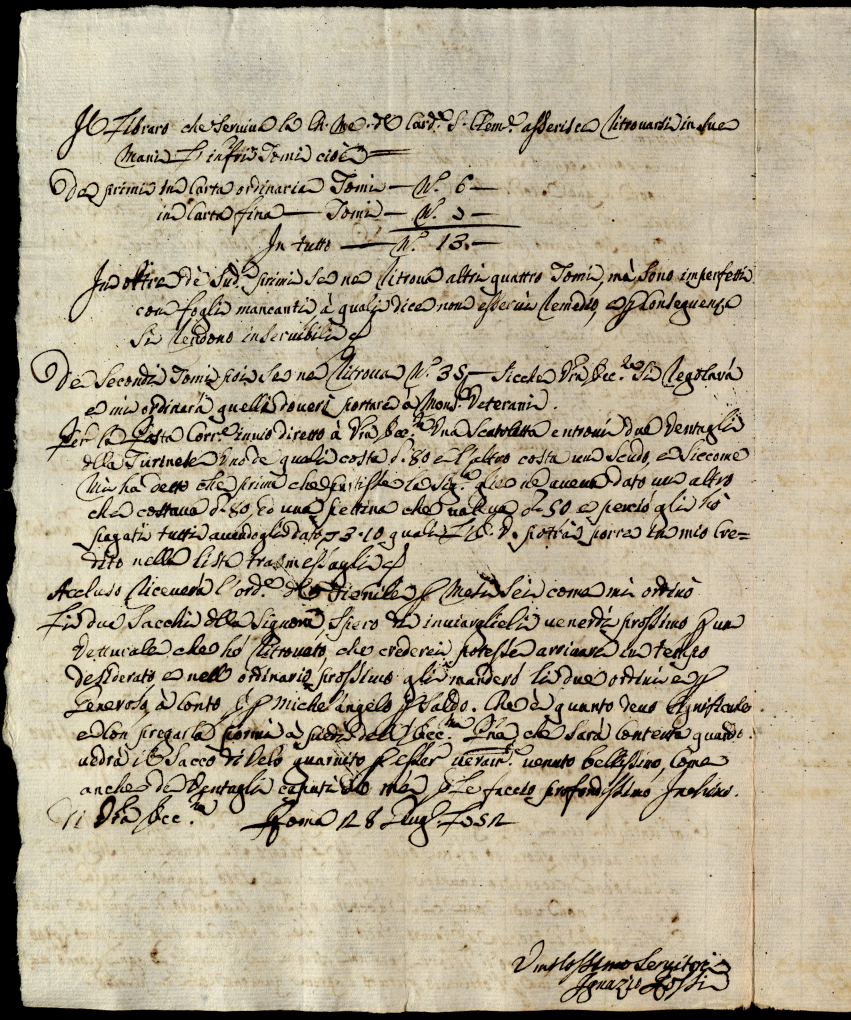 Il Libraro che serviva la Ch. Me. del Card.e S. Clem.e asserisce ritrovarsi in sue
Mani l'infri Tomi cioè =
De primi in Carta ordinaria Tomi — N.o 6 —
in Carta fina — Tomi — N.o
In tutto — N.o 13. —
In oltre de Sud.i primi se ne ritrova altri quattro Tomi, mà sono imperfetti
con fogli mancanti à quali dice non esservi remedio, e p Conseguenza
si rendono inservibili
De Secondi Tomi poi se ne ritrova N.o 35 — sicche Vra Ecc.za si regolarà
e mi ordinarà quelli doverò portare à Mons.r Veterani.
Per la Posta Corr.e invio diretto à Vra Ecc.za Una Scatoletta entrovi due Ventagli
della Turinese Uno de quali costa d. 80 e l'altro costa un scudo, e siccome
Mi ha detto che prima che partisse la Sig.ra ne aveva dato un altro
che costava d. 80, ed una pettina che valeva d. 50 e perciò gli hò
pagati tutti avendogli dato 3.10 quali V. E. potrà porre in mio Cre=
dito nella lista trasmessagli
Accluso riceverà l'ord.e del Fienile p Mesi sei come mi ordinò
Li due Sacchi della Signora, spero di inviarglieli venerdì prossimo p un
Vetturale che hò ritrovato, che crederei potesse arrivare in tempo
desiderato e nell ordinario prossimo gli manderò li due ordini p
Generoso à Conto, e p Michel'angelo p saldo. Che è quanto devo significarle
e con pregarla pormi à piedi dell' Ecc.ma Pna che sarà contenta quando
vedrà il Sacco di Velo guarnito p esser veram.e venuto bellissimo, Come
anche de Ventagli e p le faccio profondissimo Inchino.
Di Vra Ecc.za Roma 28 Lug. 1752
Umilissimo Servitore
Ignazio Rossi